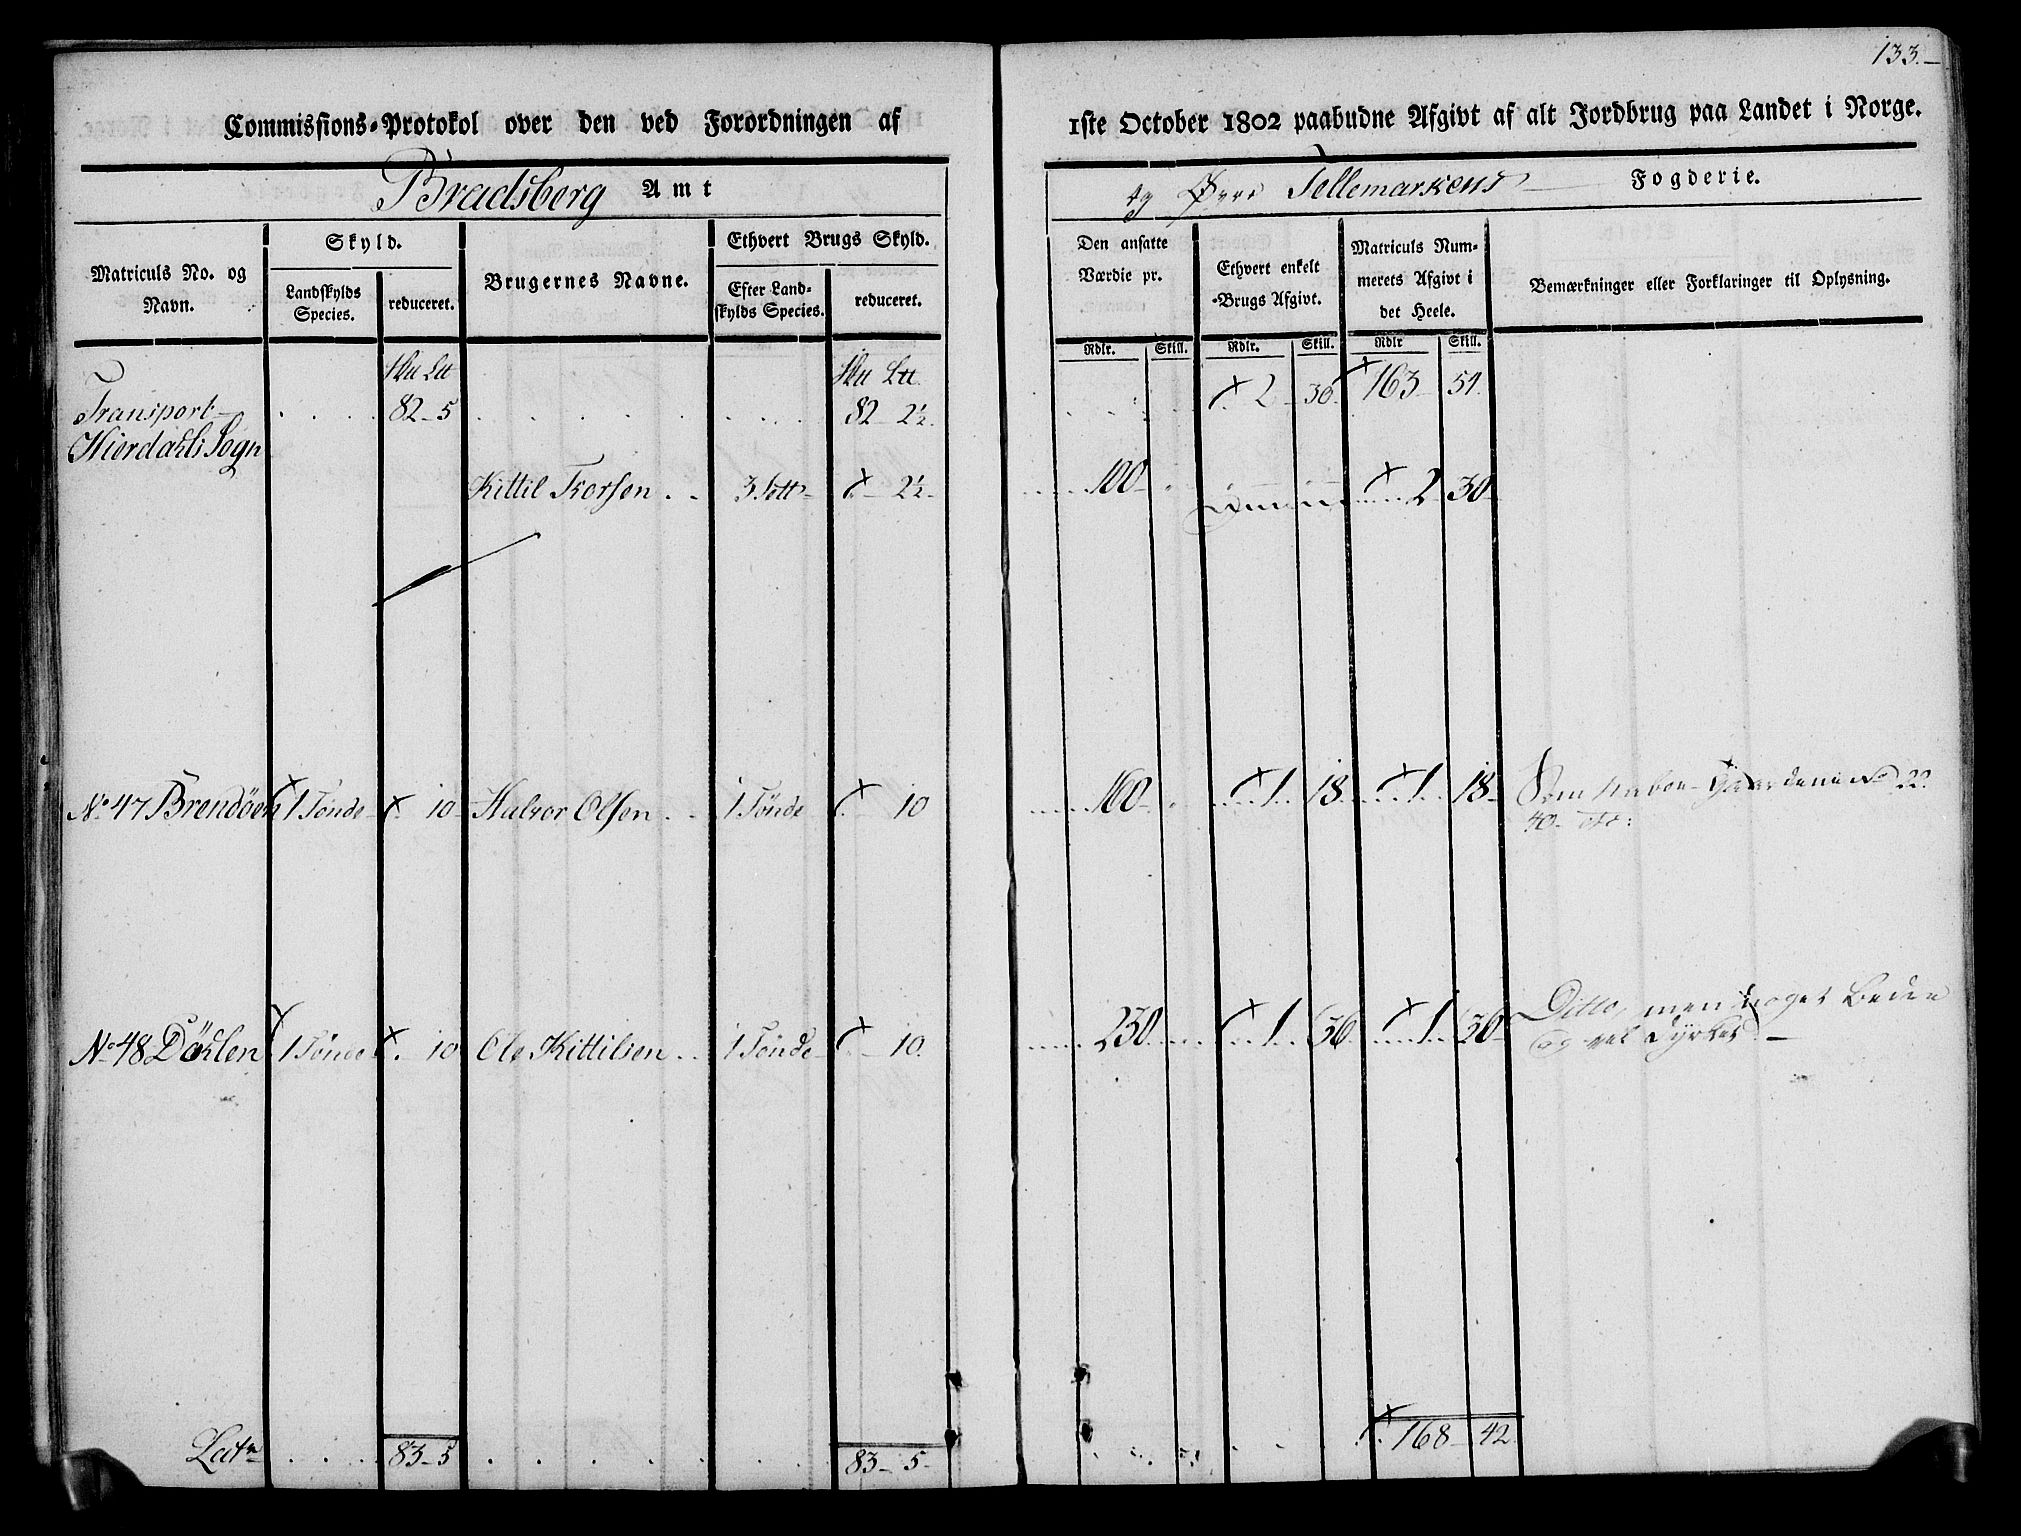 133.
Commissions-Protokol over den ved Forordningen af 1ste October 1802 paabudne Afgivt af alt Jordbrug paa Landet i Norge.
Bradsberg Amt og Øvre Tellemarkens Fogderie.
Matriculs No. og Navn.
Skyld.
Landskylds Species.
reduceret.
Brugernes Navne.
Ethvert Brugs Skyld.
Efter Landskylds Species.
reduceret.
Den ansatte Værdie pr.
Ethvert enkelt Brugs Afgivt.
Matriculs Nummerets Afgivt i det Heele.
Bemærkninger eller Forklaringer til Oplysning.
Rdlr. Skill. Rdlr. Skill. Rdlr Skill.
Transport 82-5 82-2½ 2 36 163 54
Hierdahls Sogn
Kittil Torsen 3 Sett 2½ 100 2 30
No 47 Brendøen 1 Tønde 10 Halvor Olsen 1 Tønde 10 160 1 18 1 18 Som Naboe Gaardene No 22
40
No 48 Døhlen 1 Tønde 10 Ole Kittilsen 1 Tønde 10 230 1 36 1 36 Ditto, men noget bedre
og vel Dyrket
Late 83-5 83-5 168 42